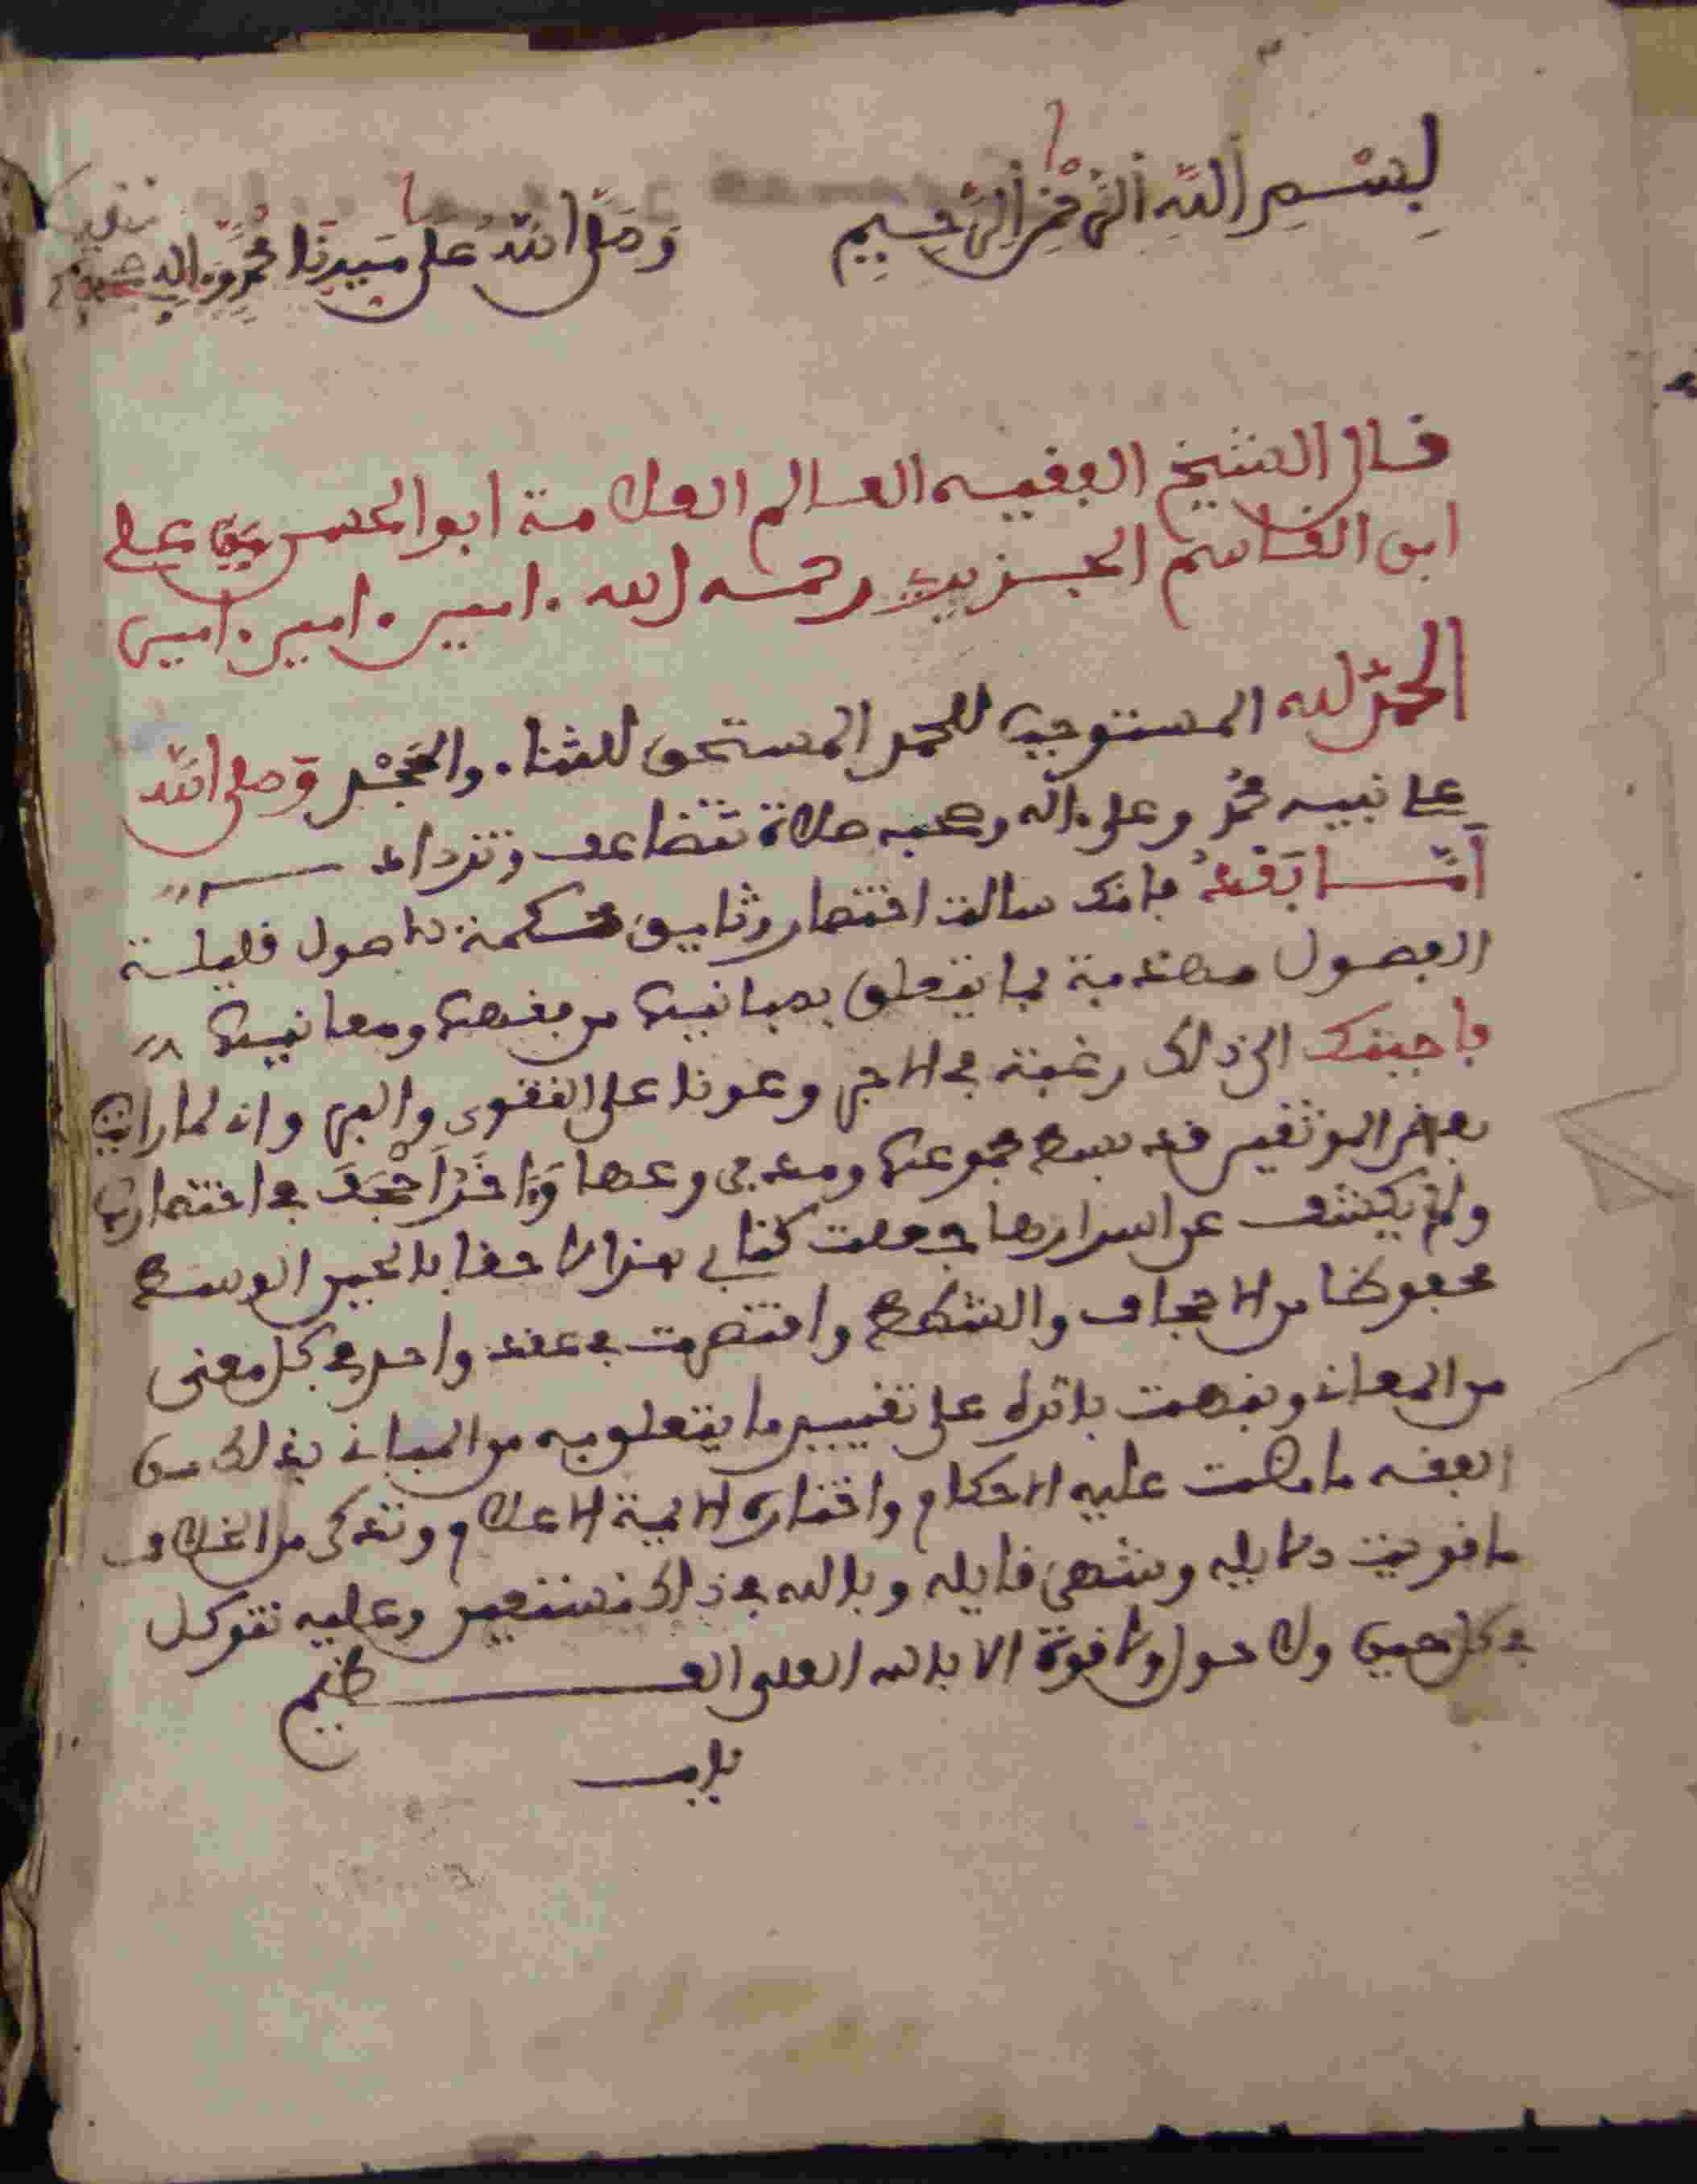 بسم الله الرحمن الرحيم وصلى الله على سيدنا محمد وءاله
قال الشيخ الفقيه العالم العلامة ابو الحسن علي
ابن القاسم الجزيري رحمه الله . امين . امين . امين
الحمد لله المستوجب للحمد المستحق للثناء . والمجد وصلى الله
على نبيه محمد وعلى ءاله وصحبه صلاة تتضاعف وتزداد
أما بعد فانك سالت اختصار وثايق محكمة الاصول قليلة
الفصول فيما يتعلق بمبانيها من فقهها ومعانيها
فاجبتك الى ذلك رغبة في الاجر وعونا على التقوى والبر واني لما رايت
بعض الموثقين قد بسط مجموعها ومد فروعها وءاخر أجحف في اختصارها
ولم يكشف عن اسرارها جعلت كتابي هذا لاحقا بالحيز الوسط
محفوظا من الاجحاف والشطط واقتصرت في عقد واحد في كل معنى
من المعاني ونبهت باثره على تفسير ما يتعلق به من المباني بذلك من
الفقه ما مضت عليه الاحكام واختاره الايمة الاعلام وتذكر من الخلاف
ما قويت دلايله وشهر قايله وبالله في ذلك نستعين وعليه نتوكل
في كل حين ولا حول ولا قوة الا بالله العلي العظيم
باب